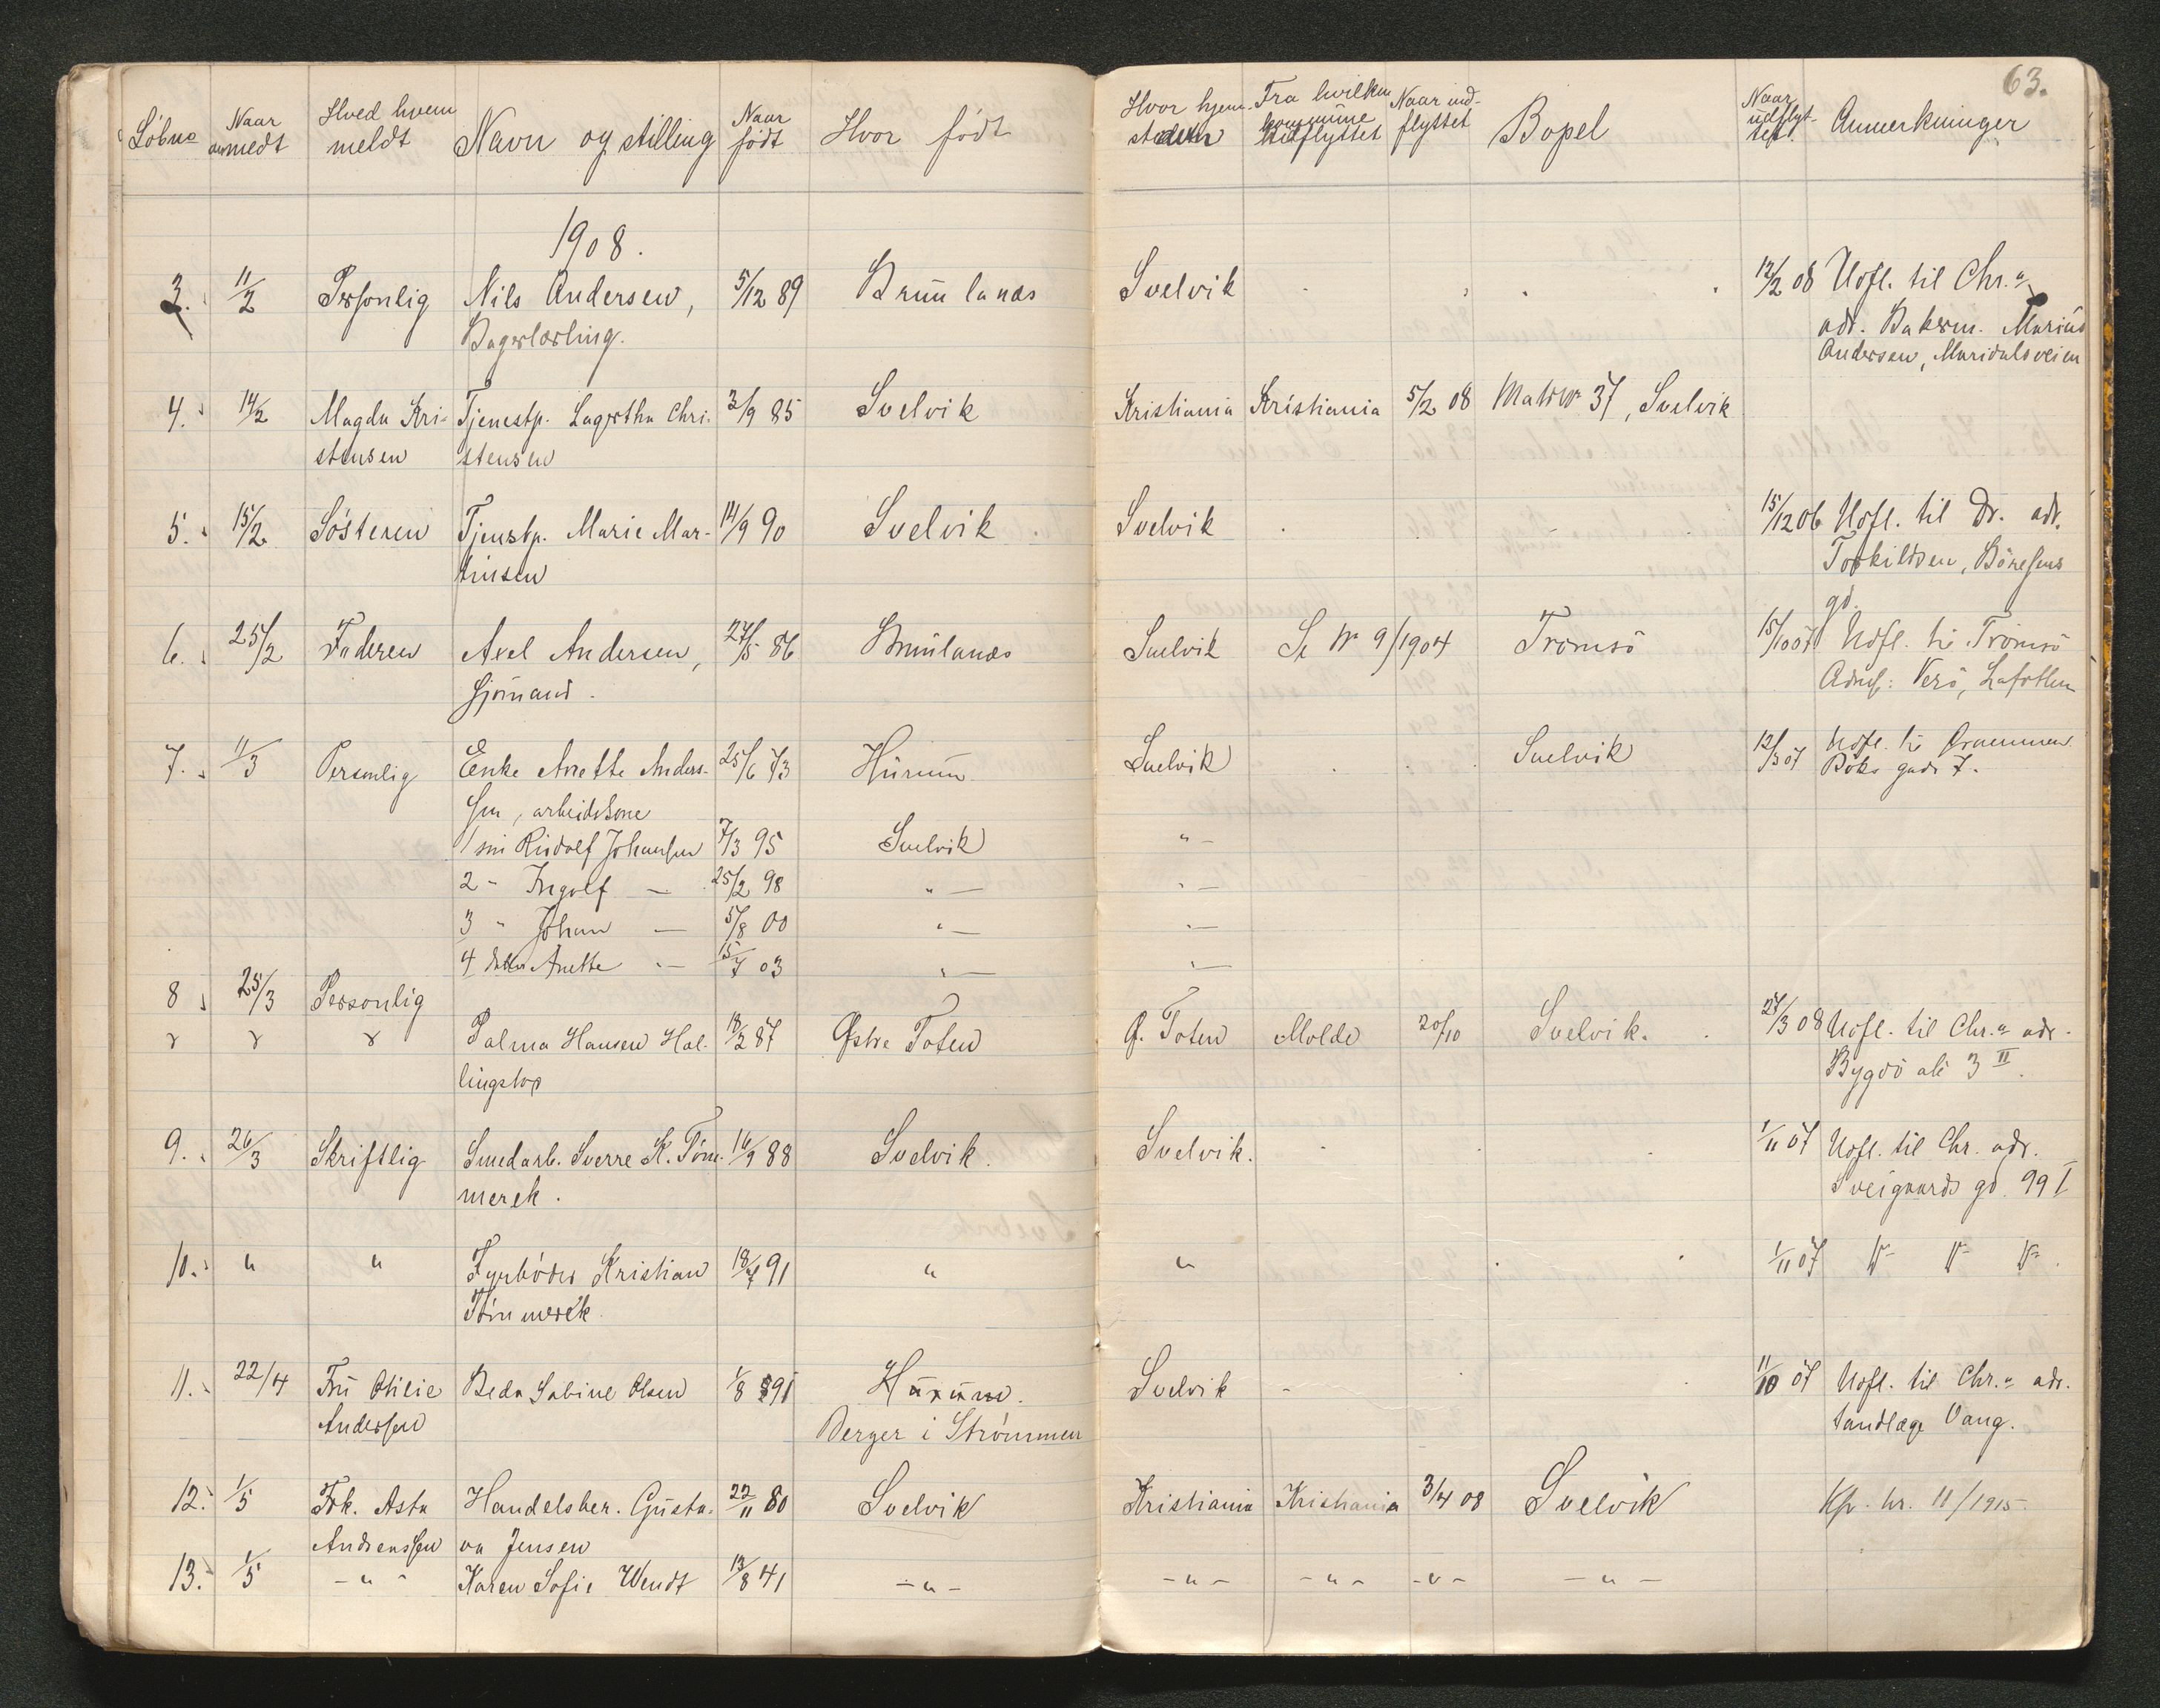 63.
Löbno Naar anmedt Hved hvem meldt Navn og stilling Naar födt Hvor födt Hvor hjemstavn Fra hvilken kommune indflyttet Naar indflyttet Bopel Naar udflyttet Anmerkninger
1908.
3. 11/2 Personlig Nils Andersen, 5/12 89 Brunlanæs Svelvik 12/2 08 Udfl. til Chr.a
Bagerlærling. adr. Bakerm. Marius
Andersen, Maridalsveien
4. 14/2 Magda Kri- Tjenestp. Lagertha Chri- 3/9 85 Svelvik Kristiania Kristiania 5/2 08 Matr № 37, Svelvik
stensen stensen
5. 15/2 Søsteren Tjenstp. Marie Mar- 14/9 90 Svelvik Svelvik 15/12 06 Udfl. til Dr. adr.
tinsen Torkildsen, Börresens
gd.
6. 25/2 Faderen Axel Andersen, 27/5 86 Brunlanæs Svelvik Se № 9/1904 Tromsö 15/10 07 Udfl. ti Tromsö
Sjömand. Adress: Verö, Lafotten
7. 11/3 Personlig Enke Anette Anders- 25/6 73 Hurum Svelvik Svelvik 12/3 07 Udfl. ti Drammen
sen, arbeidskone gade 7.
1 søn Rudolf Johansen 7/3 95 Svelvik " -
2 " Ingolf — 25/2 98 " — " —
3 " Johan — 5/8 00 " — " —
4 datter Anette — 15/7 03 " — " —
8 25/3 Personlig
Palma Hansen Hal- 18/2 87 Østre Toten Ø. Toten Molde 20/10 Svelvik. 27/3 08 Udfl. til Chr.a adr.
lingstad Bygdö alé 3 II.
9. 26/3 Skriftlig Smedarb. Sverre K. Töm- 16/9 88 Svelvik. Svelvik. 1/11 07 Udfl. til Chr. adr.
merek. Sveigaards gd. 99 I
10. " " Fyrböder Kristian 18/7 91 " " 1/11 07
Tömmerek.
11. 22/4 Fru Otilie Beda Sabine Olsen 1/8 91 Hurum. Svelvik 11/10 07 Udfl. til Chr.a adr.
Andersen Berger i Strömmen tandlæge Vang.
12. 1/5 Frk. Asta Handelsber. Gusta- 22/11 80 Svelvik Kristiania Kristiania 3/4 08 Svelvik Kfr. nr. 11/1915
Andreassen va Jensen
13. 1/5 - " - Karen Sofie Wendt 13/8 41 - " - - " - - " - - " - - " -